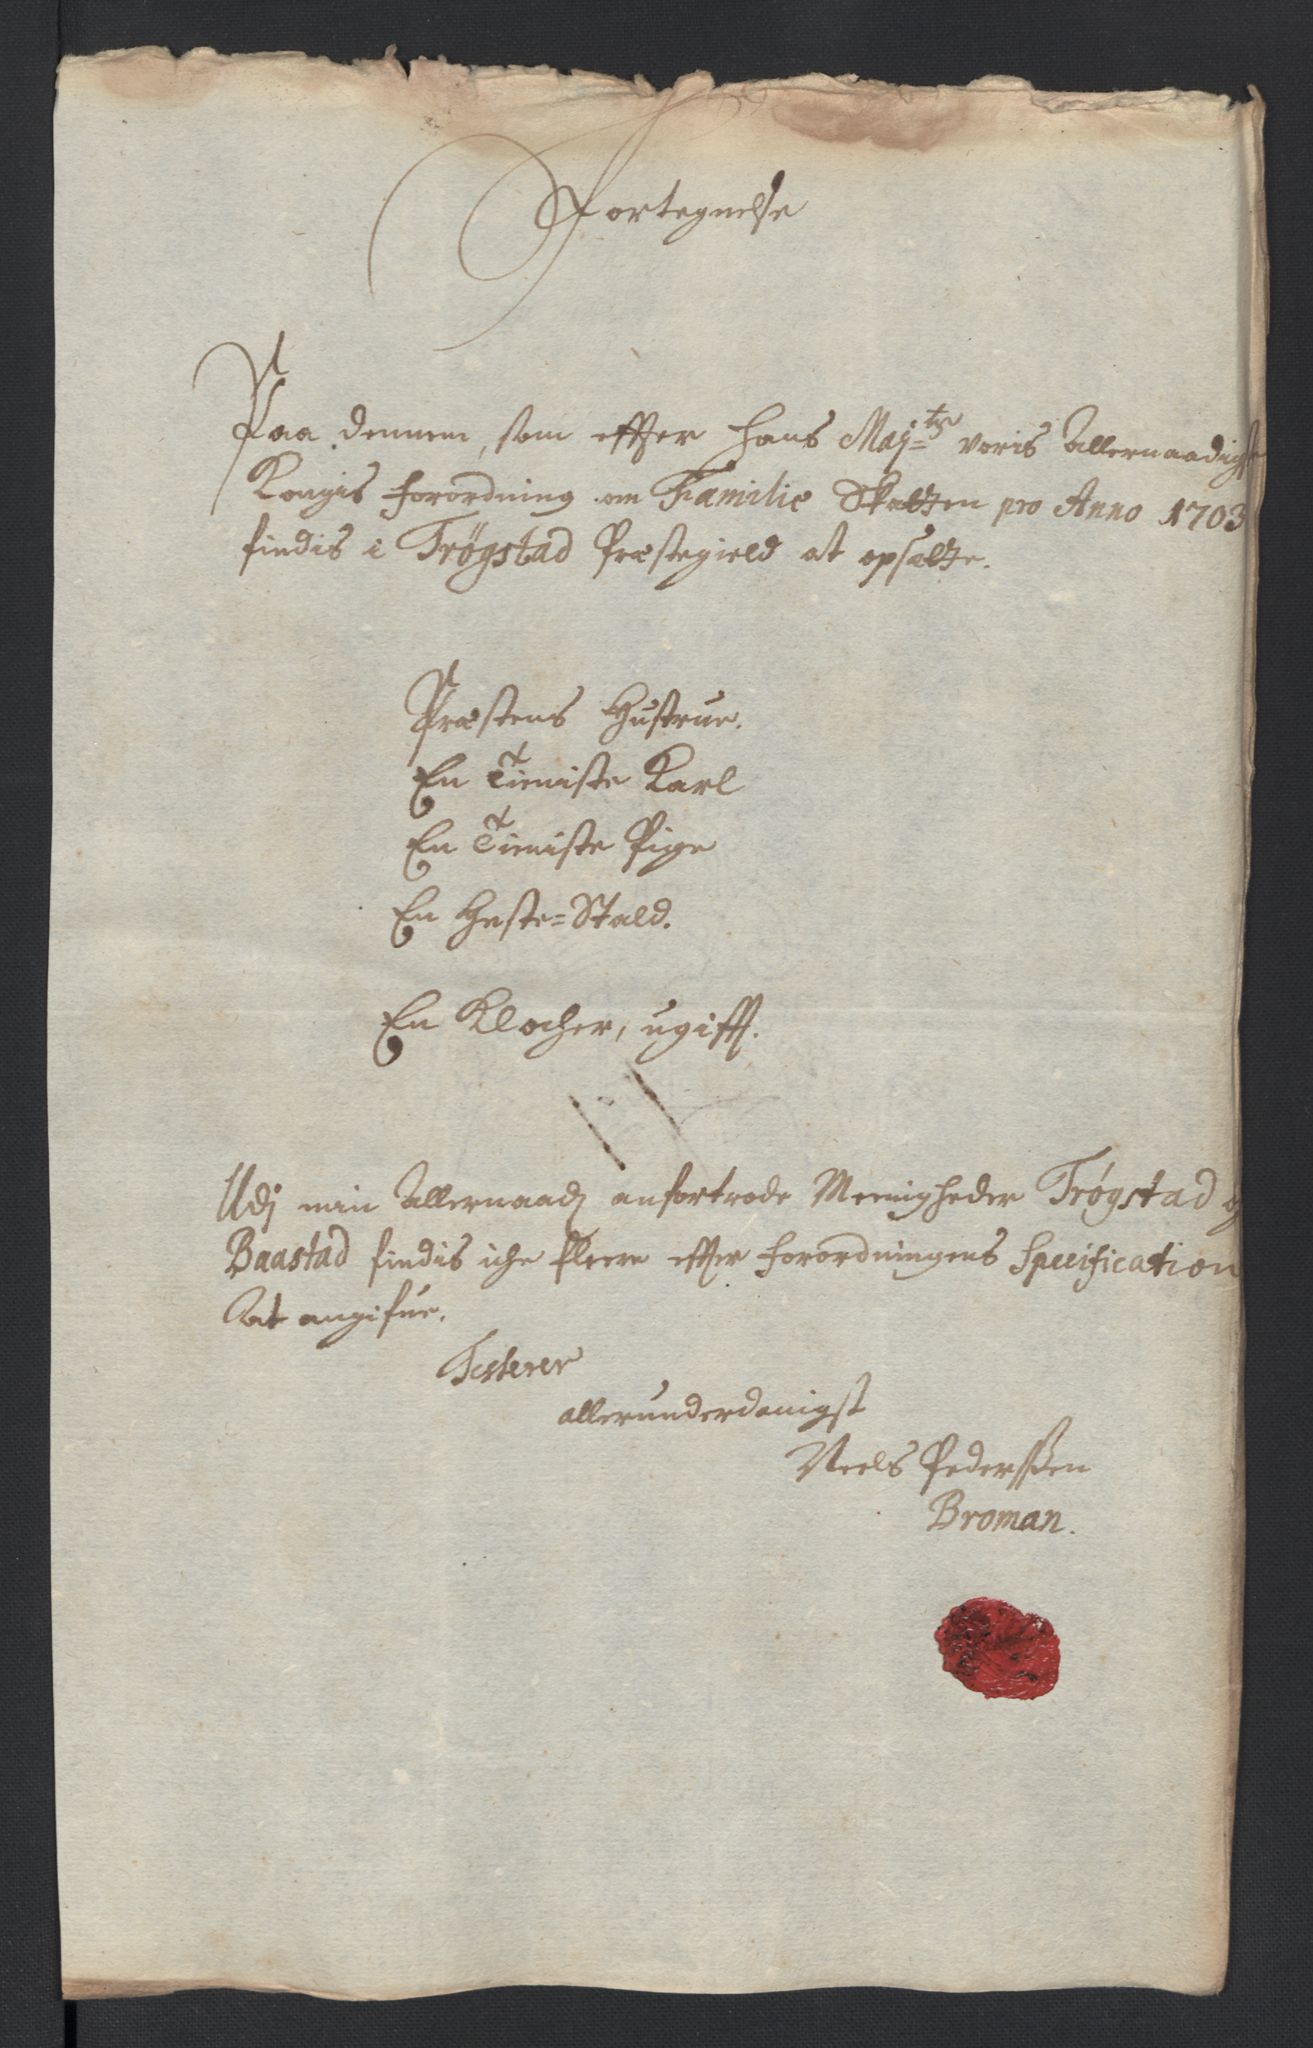 Fortegnelse
Paa dennem, som effter Hans Maj:ts voris Allernaadigste
Kongis forordning om Familie Skatten pro Anno 1703
findis i Trøgstad Præstegield at opsætte.
Præstens Hustrue.
En Tieniste Karl
En Tieniste Pige
En Heste=Stald.
En Klocher, ugifft.
Udj min Allernaad: anfortrode Meenigheder Trøgstad og
Baastad findis iche fleere effter forordningens Specification
At angifue.
Testerer
allerunderdanigst
Neels Pederssen
Broman.